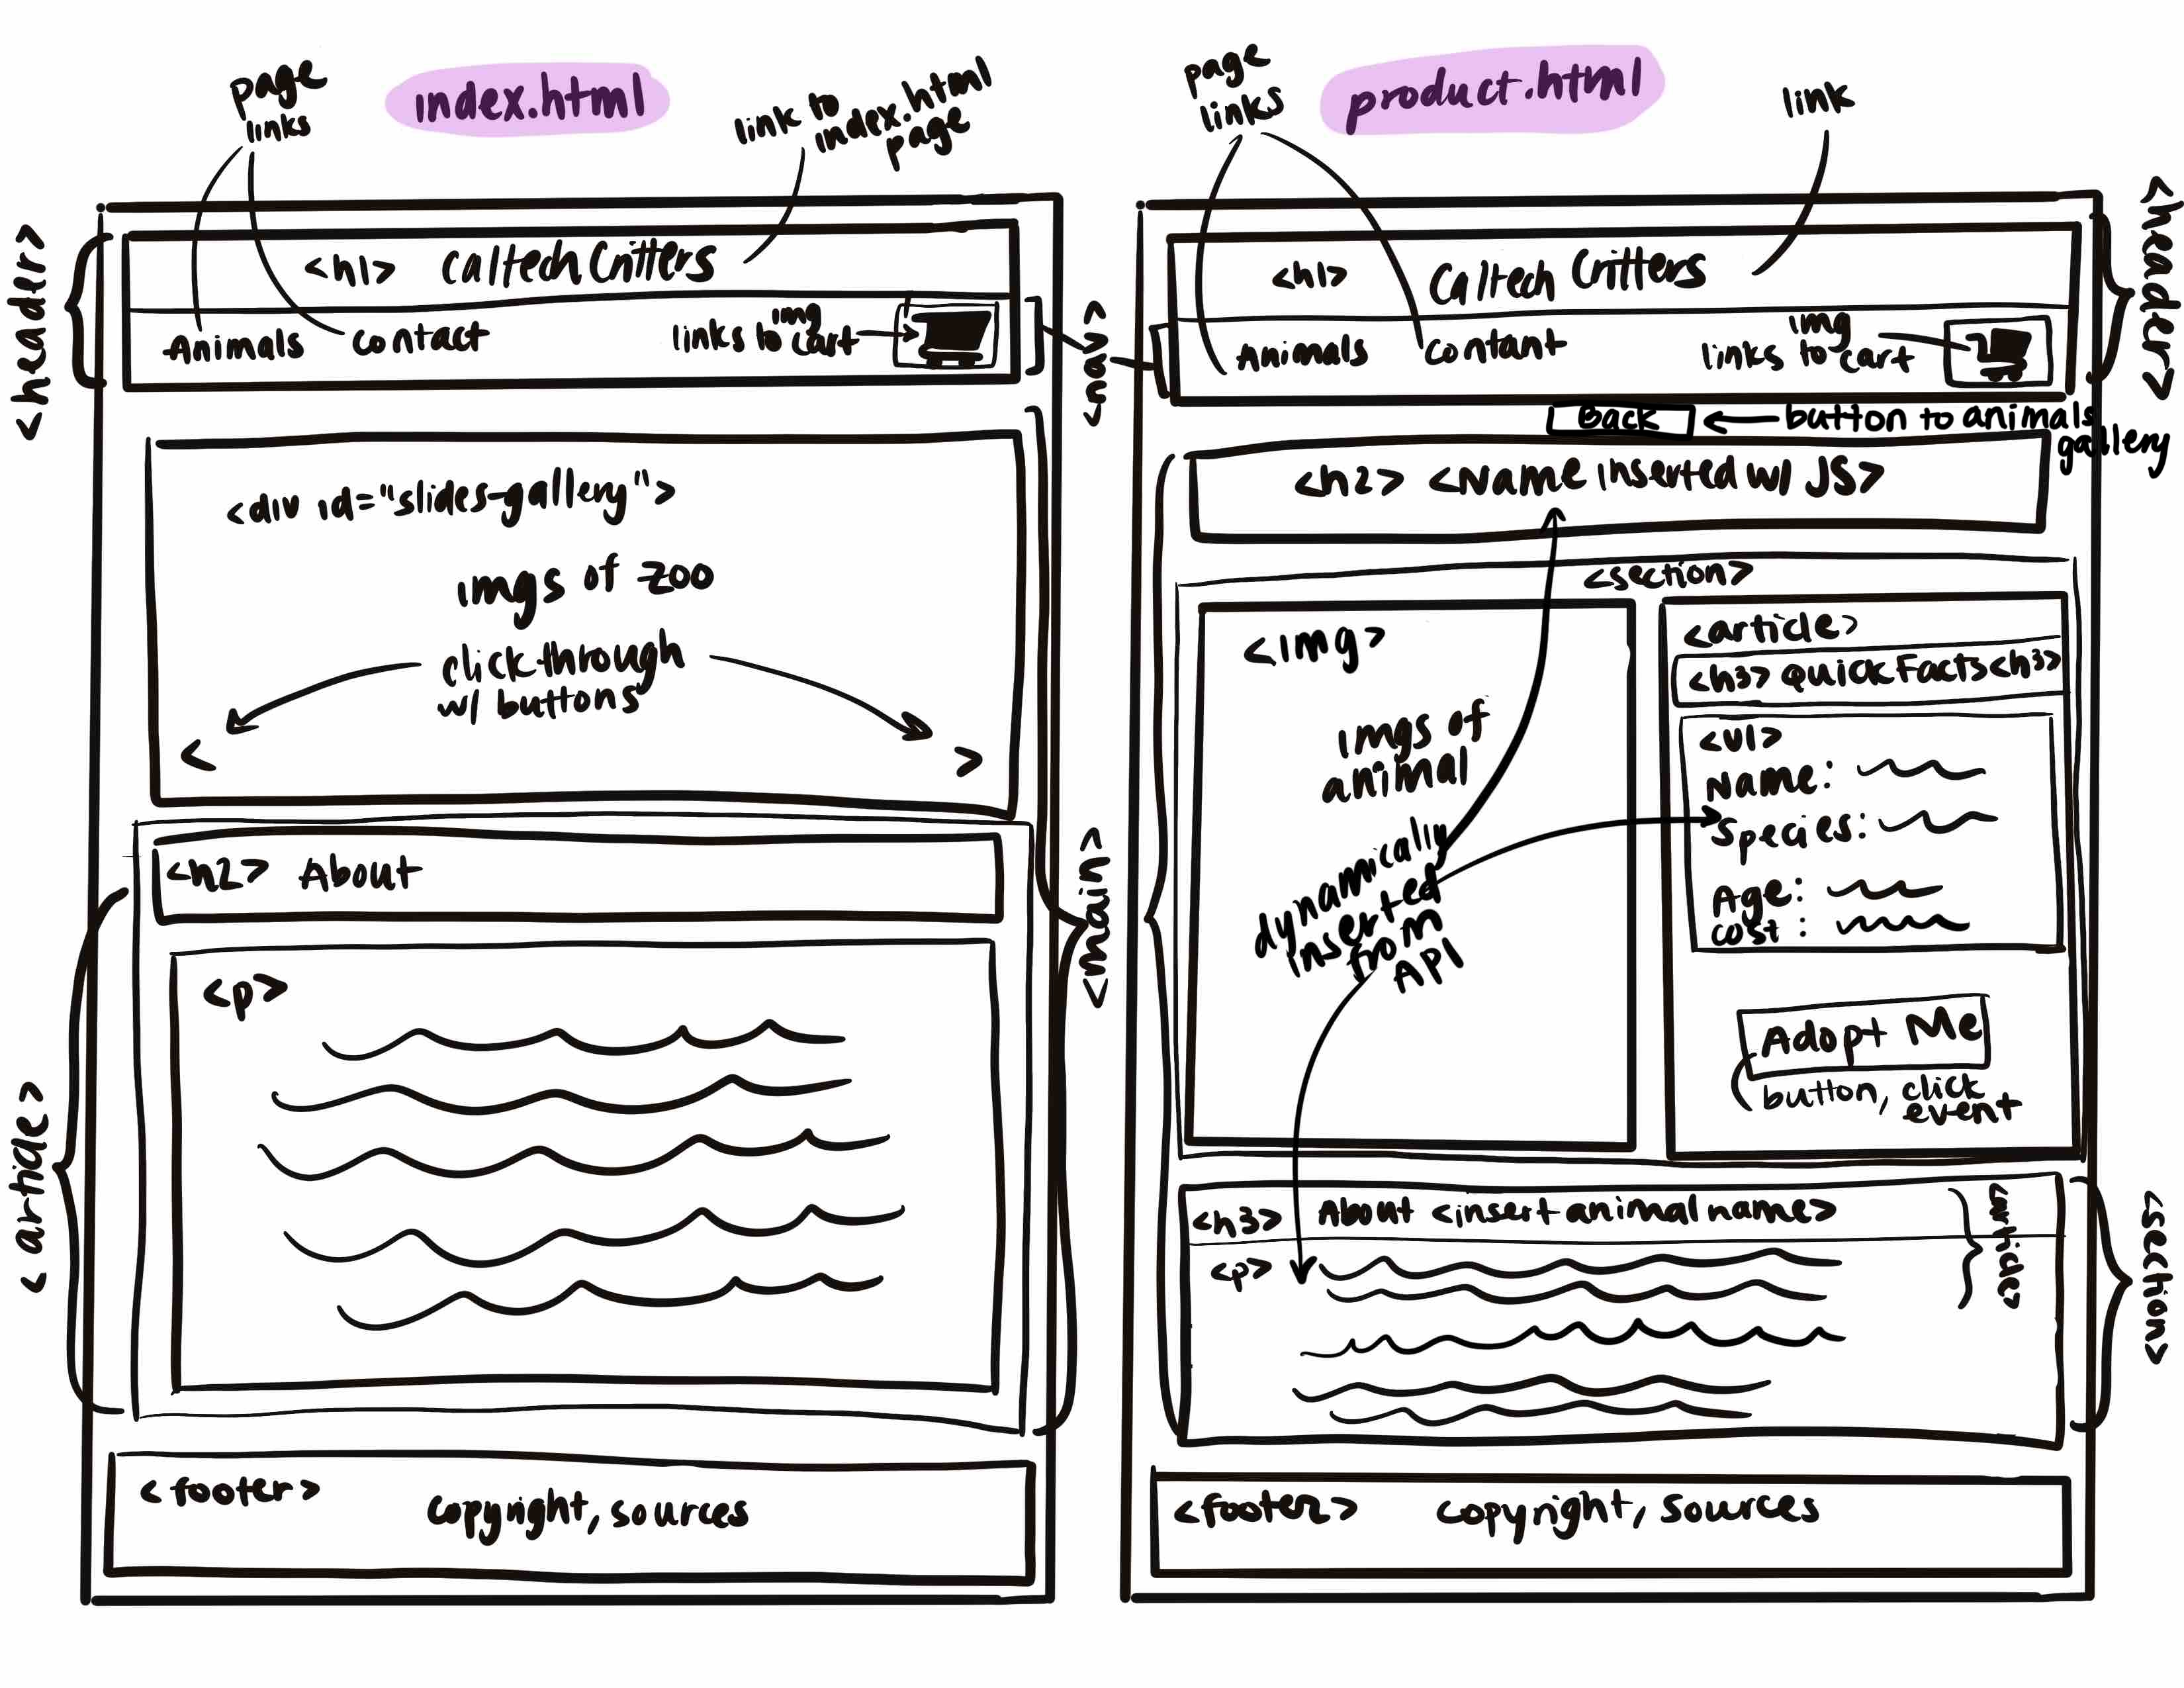 page
links
index.html
link to
index.html
page
<header>
<h1> Caltech Critters
Animals
contact
img
links to cart
<nav>
<div id="slides-gallery">
imgs of zoo
click through
w/ buttons
<
>
<main>
<article>
<h2> About
<p>
<footer>
copyright, sources
page
links
product.html
link
<header>
<h1> Caltech Critters
Animals
contant
img
links to cart
Back
button to animals
gallery
<h2> <Name inserted w/ JS>
<section>
<img>
imgs of
animal
dynamically
inserted
from
API
<article>
<h3> Quick Facts <h3>
<ul>
Name:
Species:
Age:
cost:
Adopt Me
button, click
event
<h3> About <insert animal name>
<article>
<p>
<section>
<footer>
copyright, sources